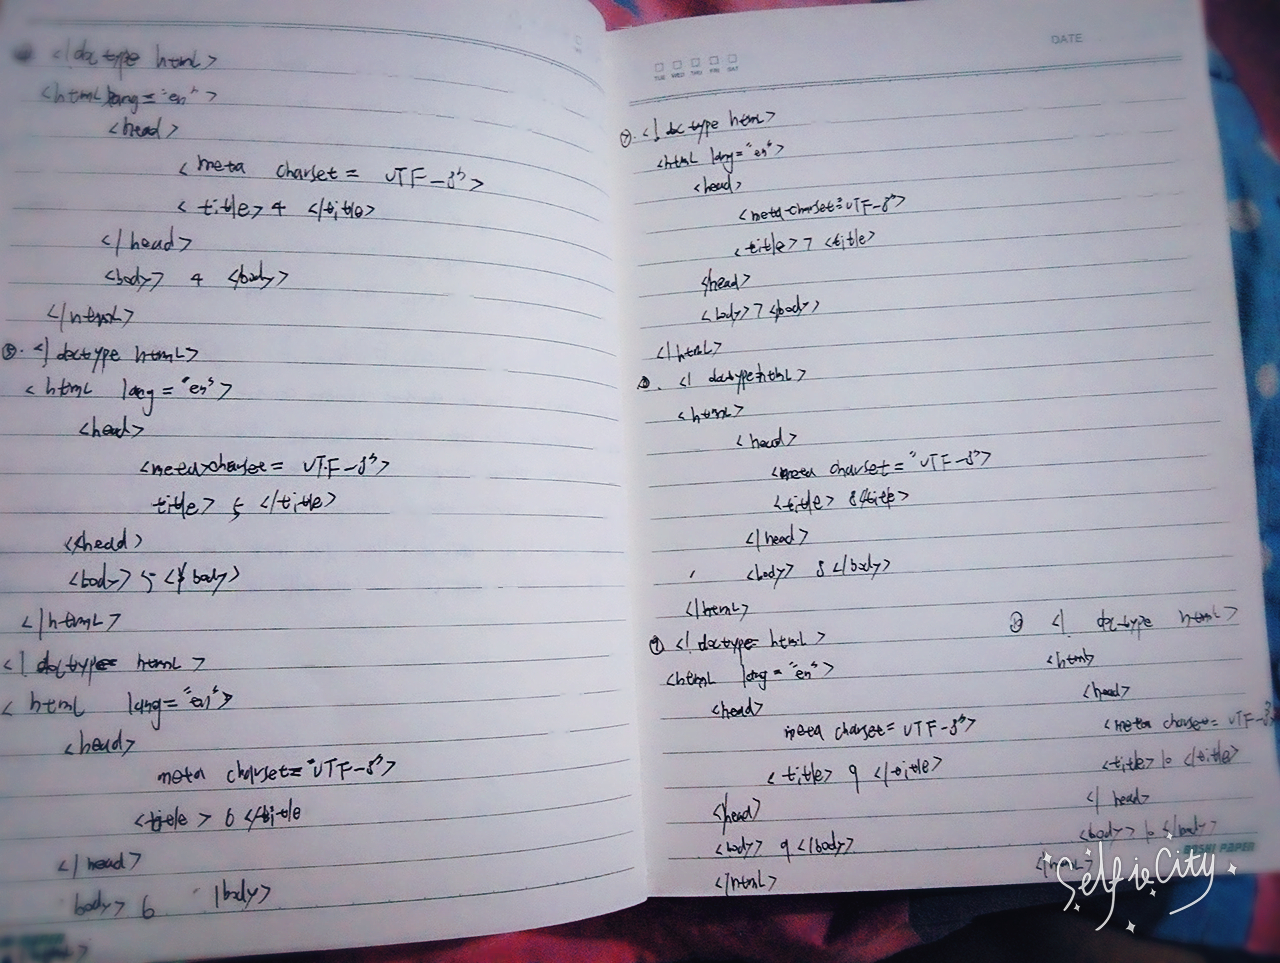 <!doctype html>
<html lang="en">
<head>
<meta charset= UTF-8">
<title> 4 </title>
</head>
<body> 4 </body>
</html>
⑤. <!doctype html>
<html lang="en">
<head>
<meta charset= UTF-8">
title> 5 </title>
</head>
<body> 5 </body>
</html>
<!doctype html>
<html lang="en">
<head>
meta charset="UTF-8">
<title> 6 </title
</head>
body> 6 /body>
TUE WED THU FRI SAT
DATE
⑦. <!doctype html>
<html lang="en">
<head>
<meta charset=UTF-8">
<title>7 <title>
</head>
<body>7</body>
</html>
⑧. <! doctype html>
<html>
<head>
<meta charset="UTF-8">
<title> 8</title>
</head>
<body> 8 </body>
</html>
⑨ <!doctype html>
<html lang="en">
<head>
meta charset=UTF-8">
<title> 9 </title>
</head>
<body> 9 </body>
</html>
⑩ <! doctype html>
<html>
<head>
<meta charset= UTF-8
<title>10 </title>
</head>
<body> 10 </body>
</html>
PAPER
SelfieCity